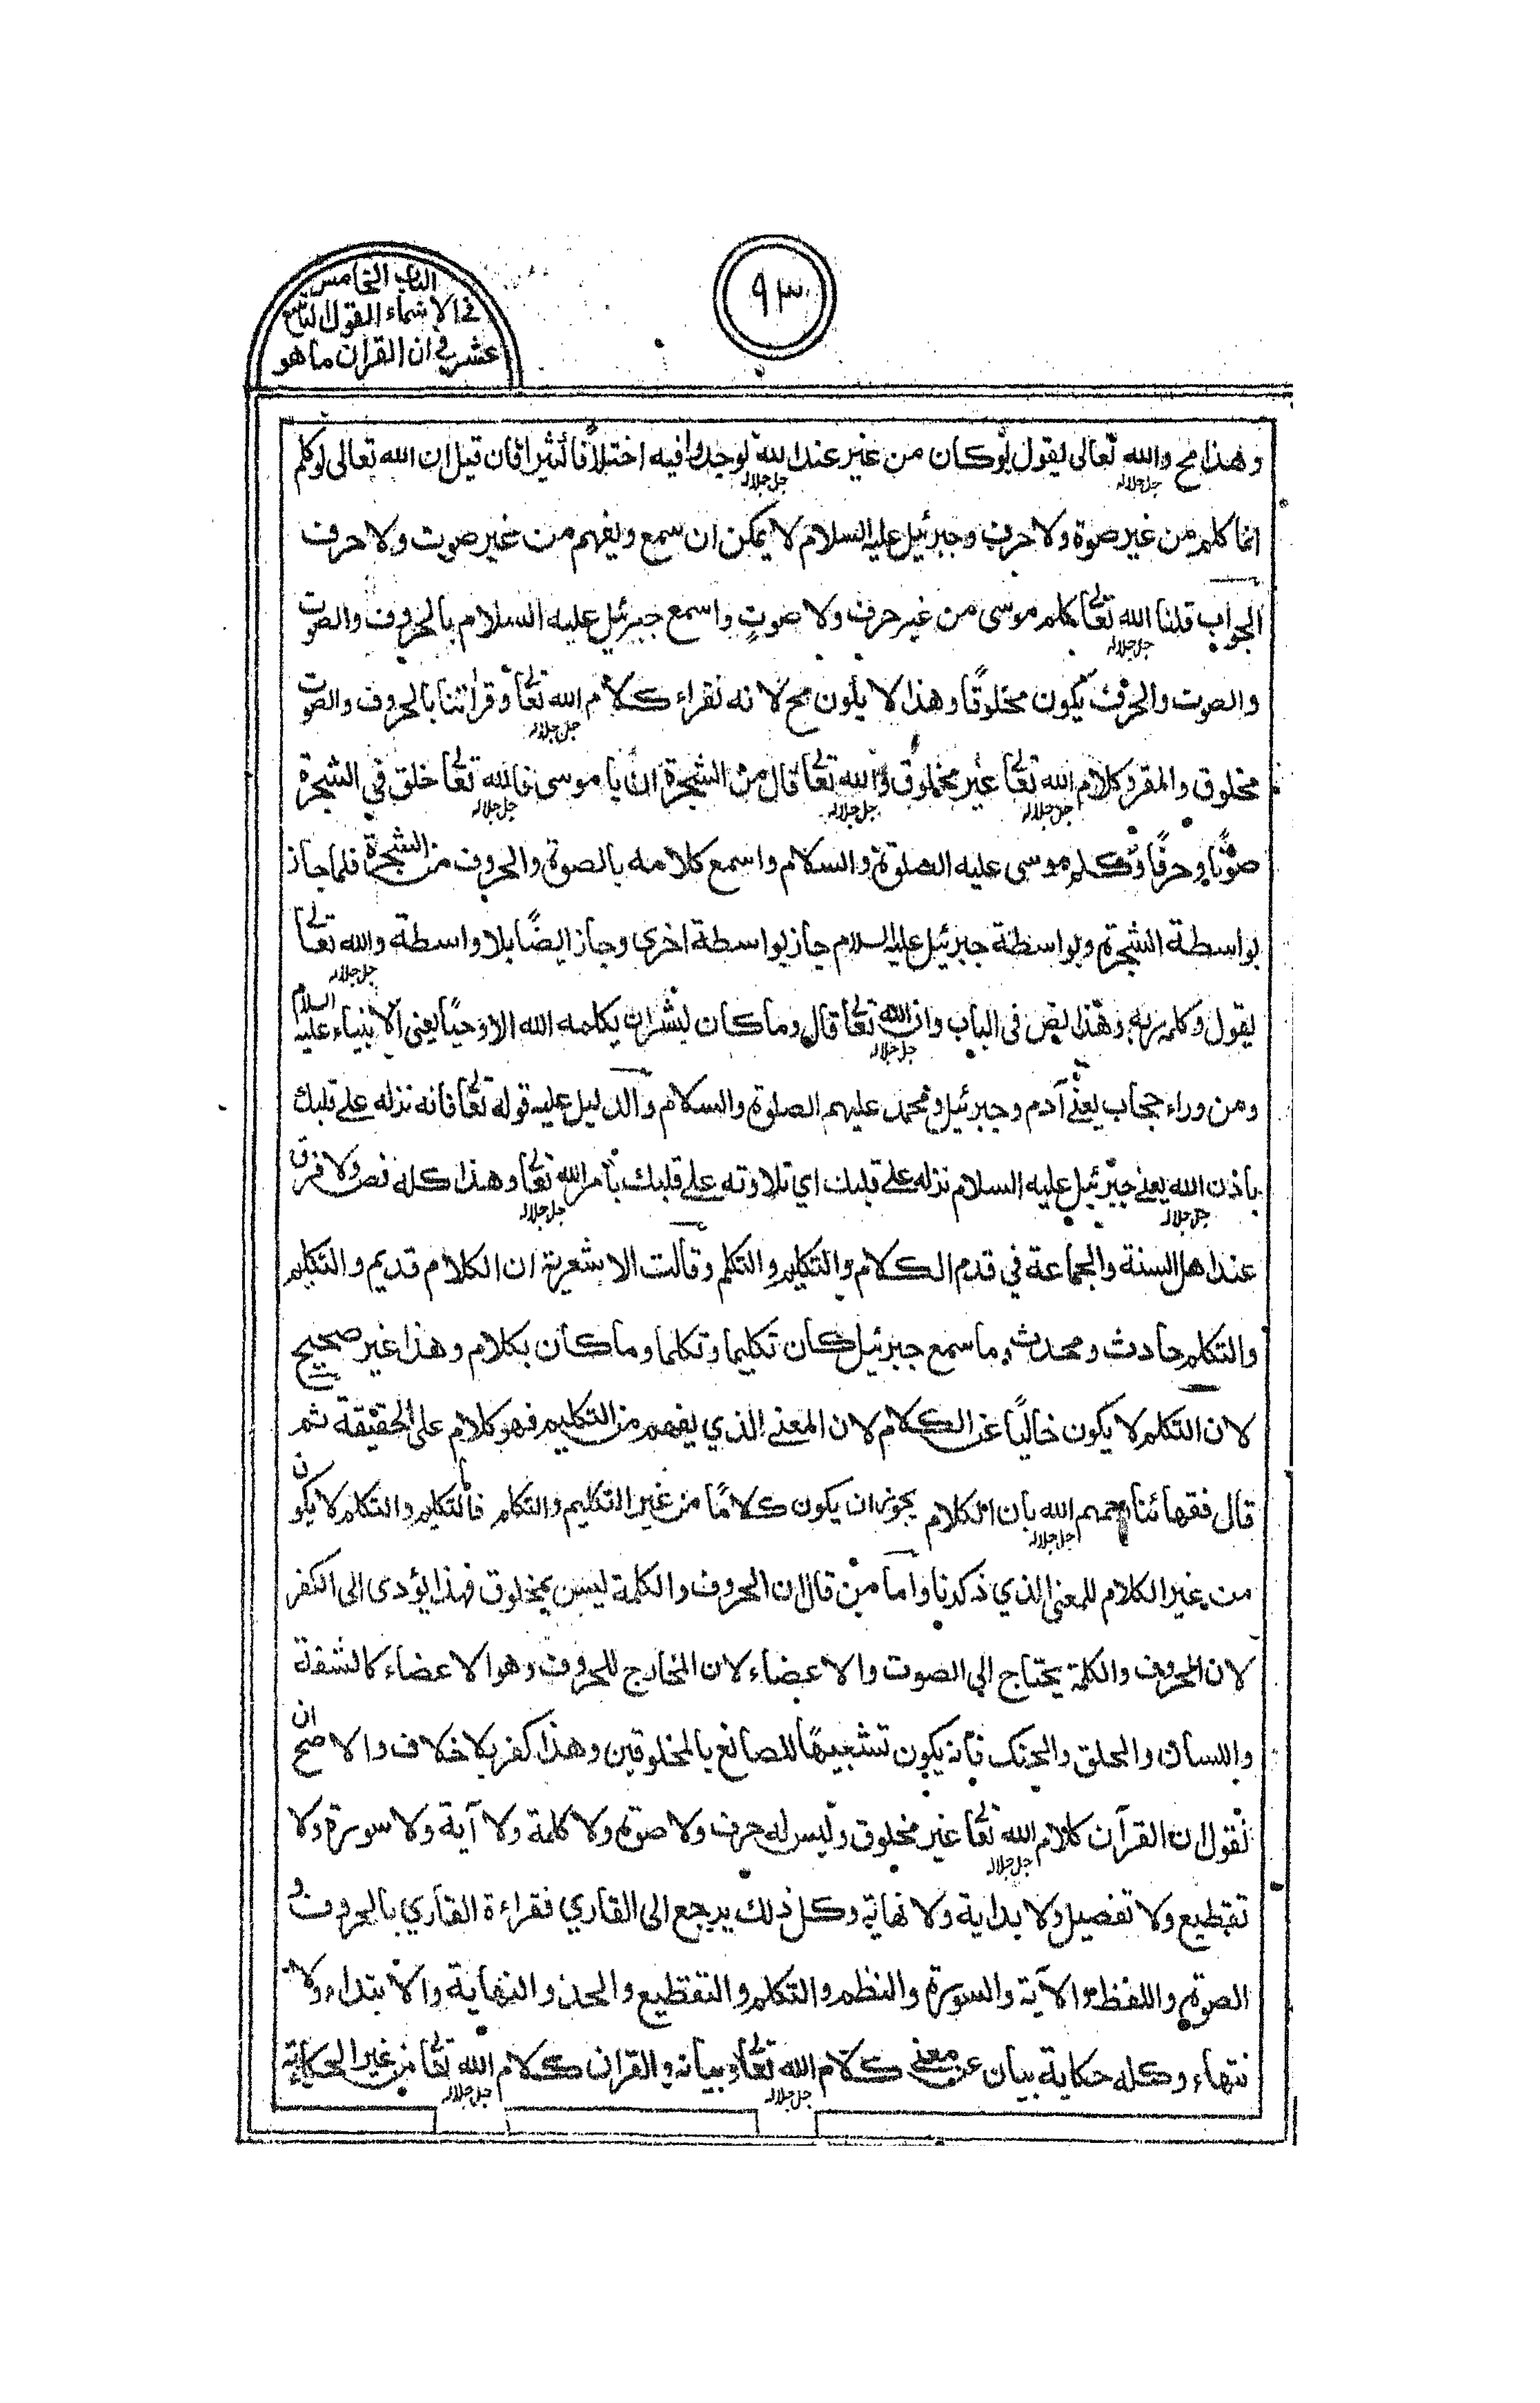 ٩٣
الباب الخامس
في الاشياء القول التاسع
عشر في ان القران ما هو
وهذا مح والله تعالى يقول لو كان من غير عند الله لوجدوا فيه اختلافا كثيرا فان قيل ان الله تعالى لو كلم
جل جلاله جل جلاله
انما كلم من غير صوة ولا حرف وجبرئيل عليه السلام لا يمكن ان سمع ويفهم من غير صوت ولا حرف
الجواب قلنا الله تعالى كلم موسى من غير حرف ولا صوت واسمع جبرئيل عليه السلام بالحروف والصوت
جل جلاله
والصوت والحرف يكون مخلوقًا وهذا لا يكون مح لانه نقراء كلام الله تعالى وقرأتنا بالحروف والصوت
جل جلاله
مخلوق والمقرو كلام الله تعالى غير مخلوق والله تعالى قال من الشجرة ان يا موسى فالله تعالى خلق في الشجرة
جل جلاله جل جلاله جل جلاله
صوتًا وحرفًا وكلم موسى عليه الصلوة والسلام واسمع كلامه بالصوة والحروف من الشجرة فلما جاز
بواسطة الشجرة وبواسطة جبرئيل عليه السلام جاز بواسطة اخرى وجاز ايضًا بلا واسطة والله تعالى
جل جلاله
يقول وكلمه ربه وهذا نص في الباب وان الله تعالى قال وما كان لبشر ان يكلمه الله الا وحيًا يعني الانبياء عليه السلام
جل جلاله
ومن وراء حجاب يعني آدم وجبرئيل ومحمد عليهم الصلوة والسلام والدليل عليه قوله تعالى فانه نزله على قلبك
باذن الله يعني جبرئيل عليه السلام نزله على قلبك اي تلاوته على قلبك بأمر الله تعالى وهذا كله نص ولا فرق
جل جلاله جل جلاله
عند اهل السنة والجماعة في قدم الكلام والتكليم والتكلم وقالت الاشعرية ان الكلام قديم والتكليم
والتكلم حادث ومحدث وما سمع جبرئيل كان تكليما وتكلما وما كان بكلام وهذا غير صحيح
لان التكلم لا يكون خاليًا عن الكلام لان المعنى الذي يفهم من التكليم فهو كلام على الحقيقة ثم
قال فقهائنا رحمهم الله بان الكلام يجوز ان يكون كلامًا من غير التكليم والتكلم فالتكليم والتكلم لا يكون
جل جلاله
من غير الكلام للمعنى الذي ذكرنا واما من قال ان الحروف والكلمة ليس بمخلوق فهذا يؤدى الى الكفر
لان الحروف والكلمة يحتاج الى الصوت والاعضاء لان المخارج للحروف وهو الاعضاء كالشفة
واللسان والحلق والحنك فانه يكون تشبيهًا للصانع بالمخلوقين وهذا كفر بلا خلاف والاصح ان
نقول ان القرآن كلام الله تعالى غير مخلوق وليس له حرف ولا صوة ولا كلمة ولا آية ولا سورة ولا
جل جلاله
تقطيع ولا تفصيل ولا بداية ولا نهاية وكل ذلك يرجع الى القاري فقراءة القاري بالحروف و
الصوة واللفظ والآية والسورة والنظم والتكلم والتقطيع والحد والنهاية والابتداء ولا
نتهاء وكله حكاية بيان عن معنى كلام الله تعالى وبيانه والقران كلام الله تعالى من غير الحكاية
جل جلاله جل جلاله